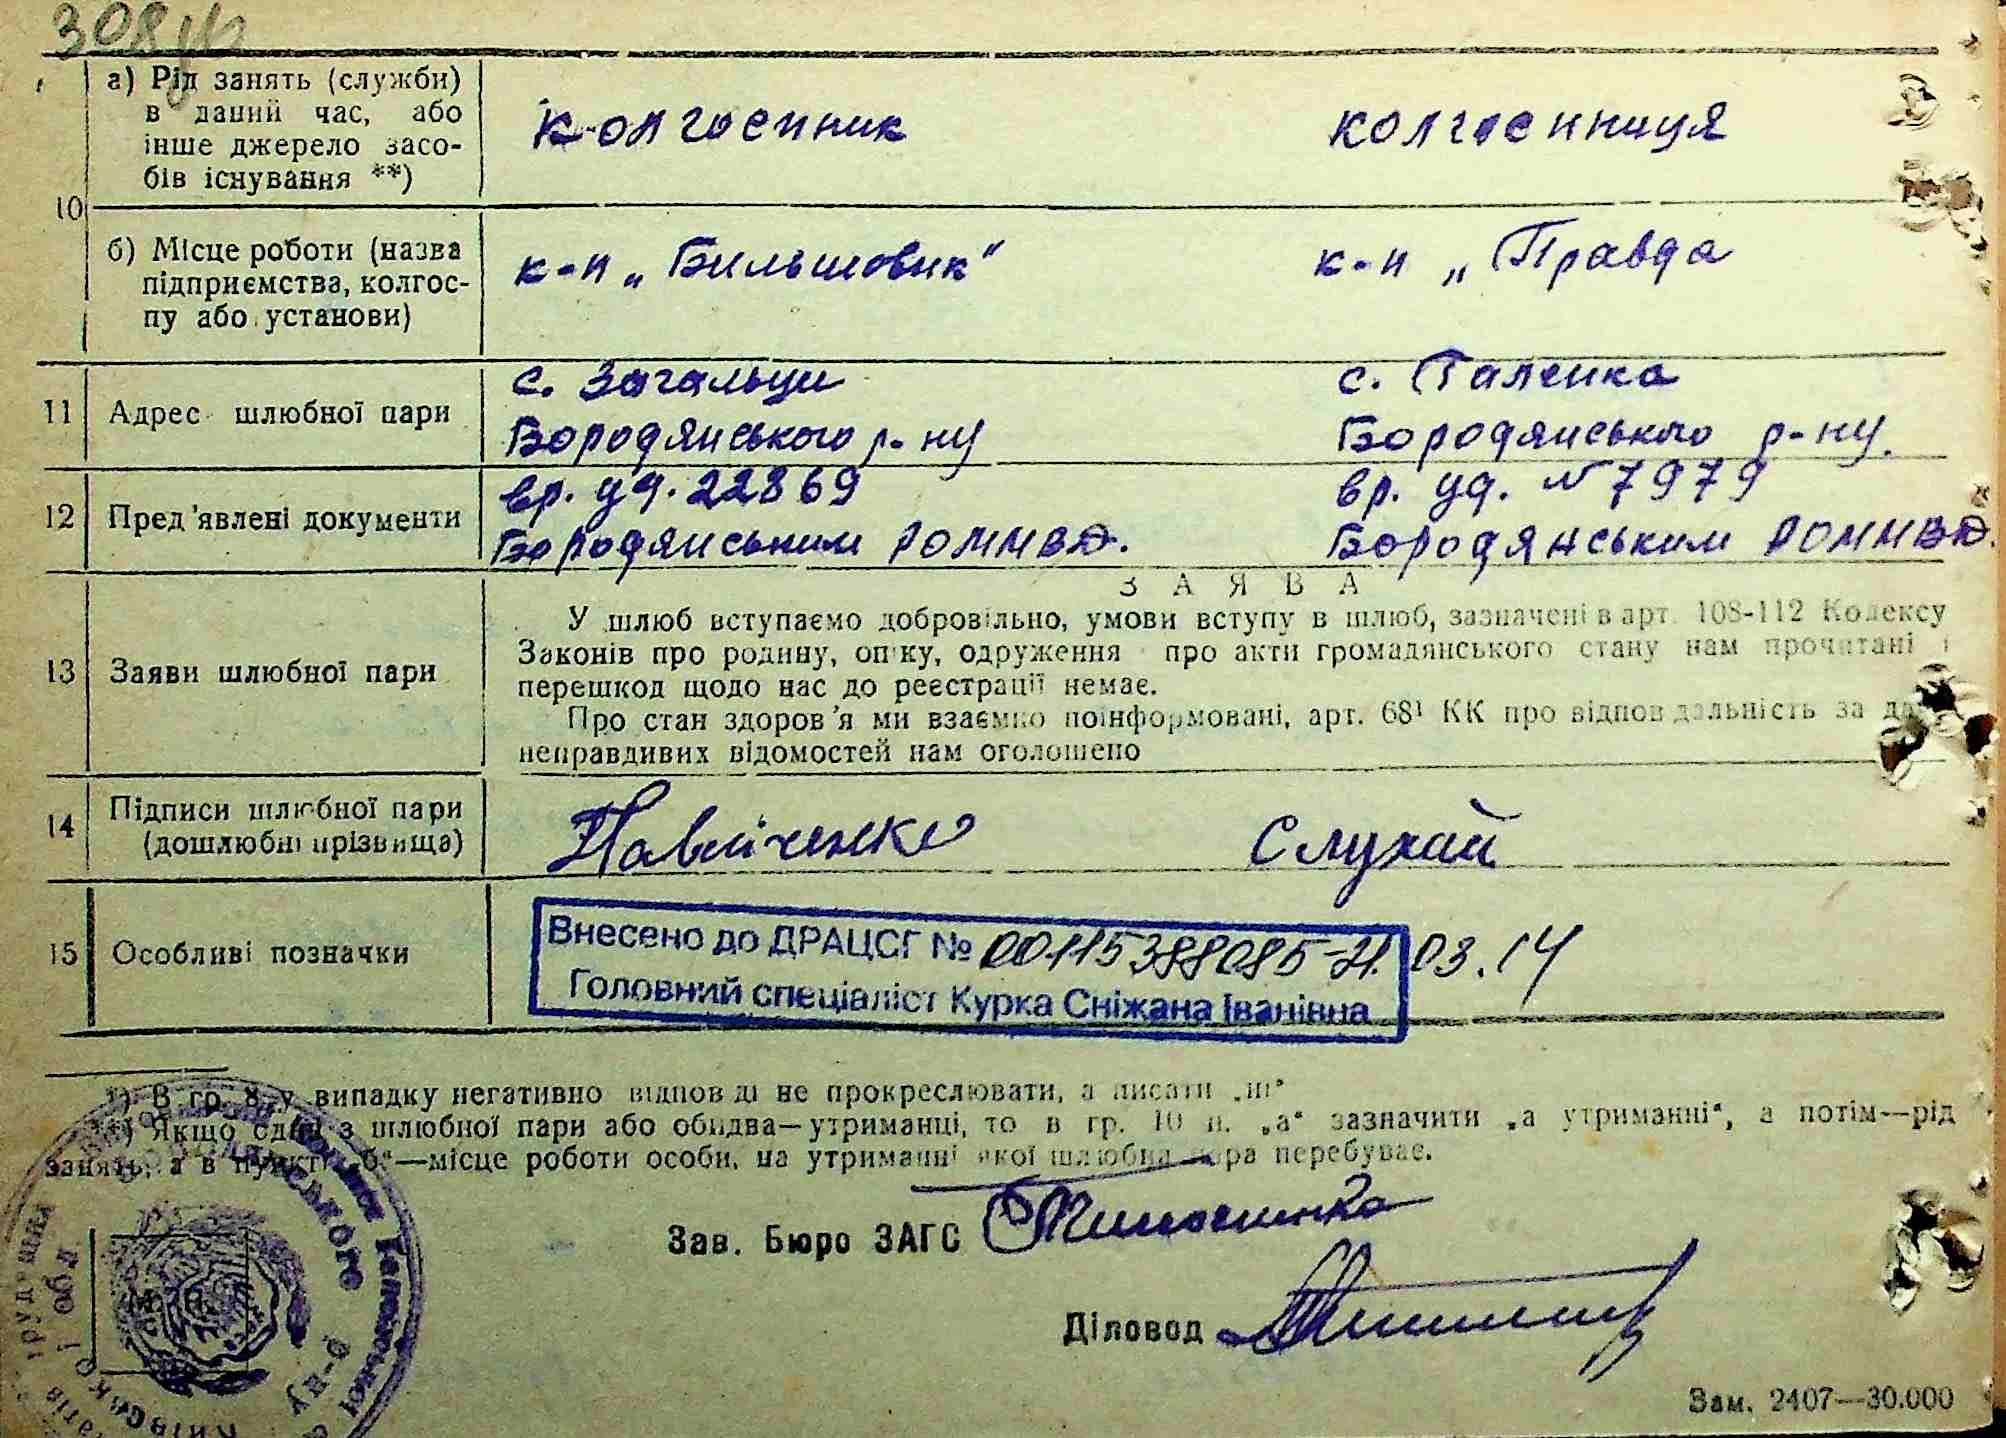 308
а) Рід занять (служби)
в даний час, або
інше джерело засо-
бів існування **)
колгоспник колгоспниця
10
б) Місце роботи (назва
підприємства, колгос-
пу або установи)
к-п „Більшовик“ к-п „Правда
11 Адрес шлюбної пари
с. Загальци с. Галенка
Бородянського р-ну Бородянського р-ну.
12 Пред'явлені документи
вр. уд. 22869 вр. уд. №7979
Бородянським РОММВД. Бородянським РОММВД.
ЗАЯВА
13 Заяви шлюбної пари
У шлюб вступаємо добровільно, умови вступу в шлюб, зазначені в арт. 108-112 Кодексу
Законів про родину, опіку, одруження про акти громадянського стану нам прочитані і
перешкод щодо нас до реєстрації немає.
Про стан здоров'я ми взаємно поінформовані, арт. 68¹ КК про відповідальність за
неправдивих відомостей нам оголошено
14 Підписи шлюбної пари
(дошлюбні прізвища)
Павліченко Слухай
15 Особливі позначки
Внесено до ДРАЦСГ № 00115388085-21.03.14
Головний спеціаліст Курка Сніжана Іванівна
*) В гр. 8, у випадку негативно відповіді не прокреслювати, а писати „ні“
**) Якщо один з шлюбної пари або обидва—утриманці, то в гр. 10 п. „а“ зазначити „а утриманні“, а потім—рід
занять, а в пункті „б“—місце роботи особи, на утриманні якої шлюбна пара перебуває.
Зав. Бюро ЗАГС
Діловод
М. П.
Київської обл
р-ну
Зам. 2407—30.000